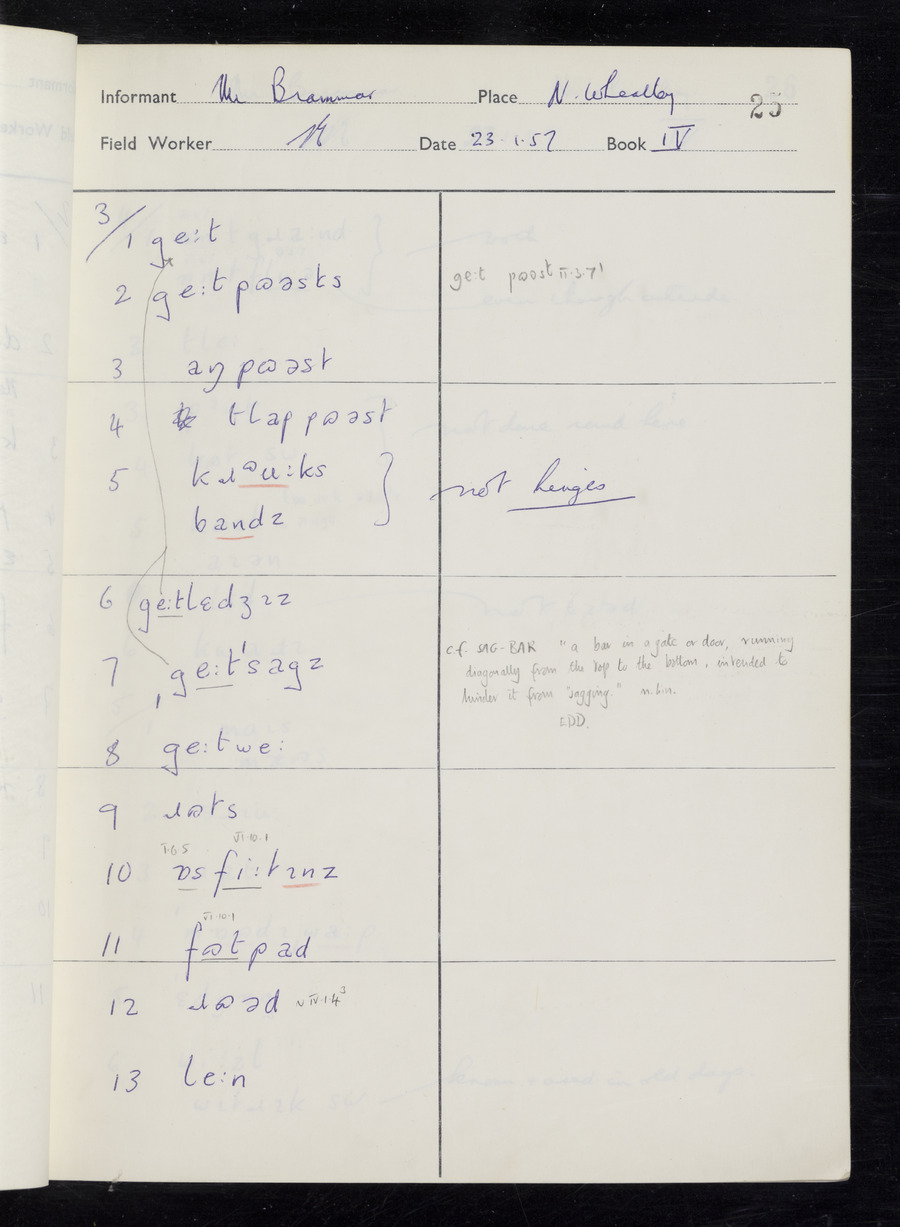 Informant Mr Brammar Place N. Wheatley 25
Field Worker Date 23.1.57 Book IV
3/1 ge:t
2 ge:tpɷəsts ge:t pɷəst II.3.7!
3 aŋ pɷəst
4 tlap pɷəst
5 kɹᶷu:ks
bandz } not hinges
6 ge:tlɛdʒɪz
7 ˌge:t'sagz c.f. SAG-BAR "a bar in a gate or door, running
diagonally from the top to the bottom, intended to
hinder it from "sagging." n.Lin.
EDD.
8 ge:twe:
9 ɹɷts
I.6.5 VI.10.1
10 ɒsfi:tɪnz
VI.10.1
11 fɷtpad
12 ɹɷəd v IV.1.4³
13 le:n